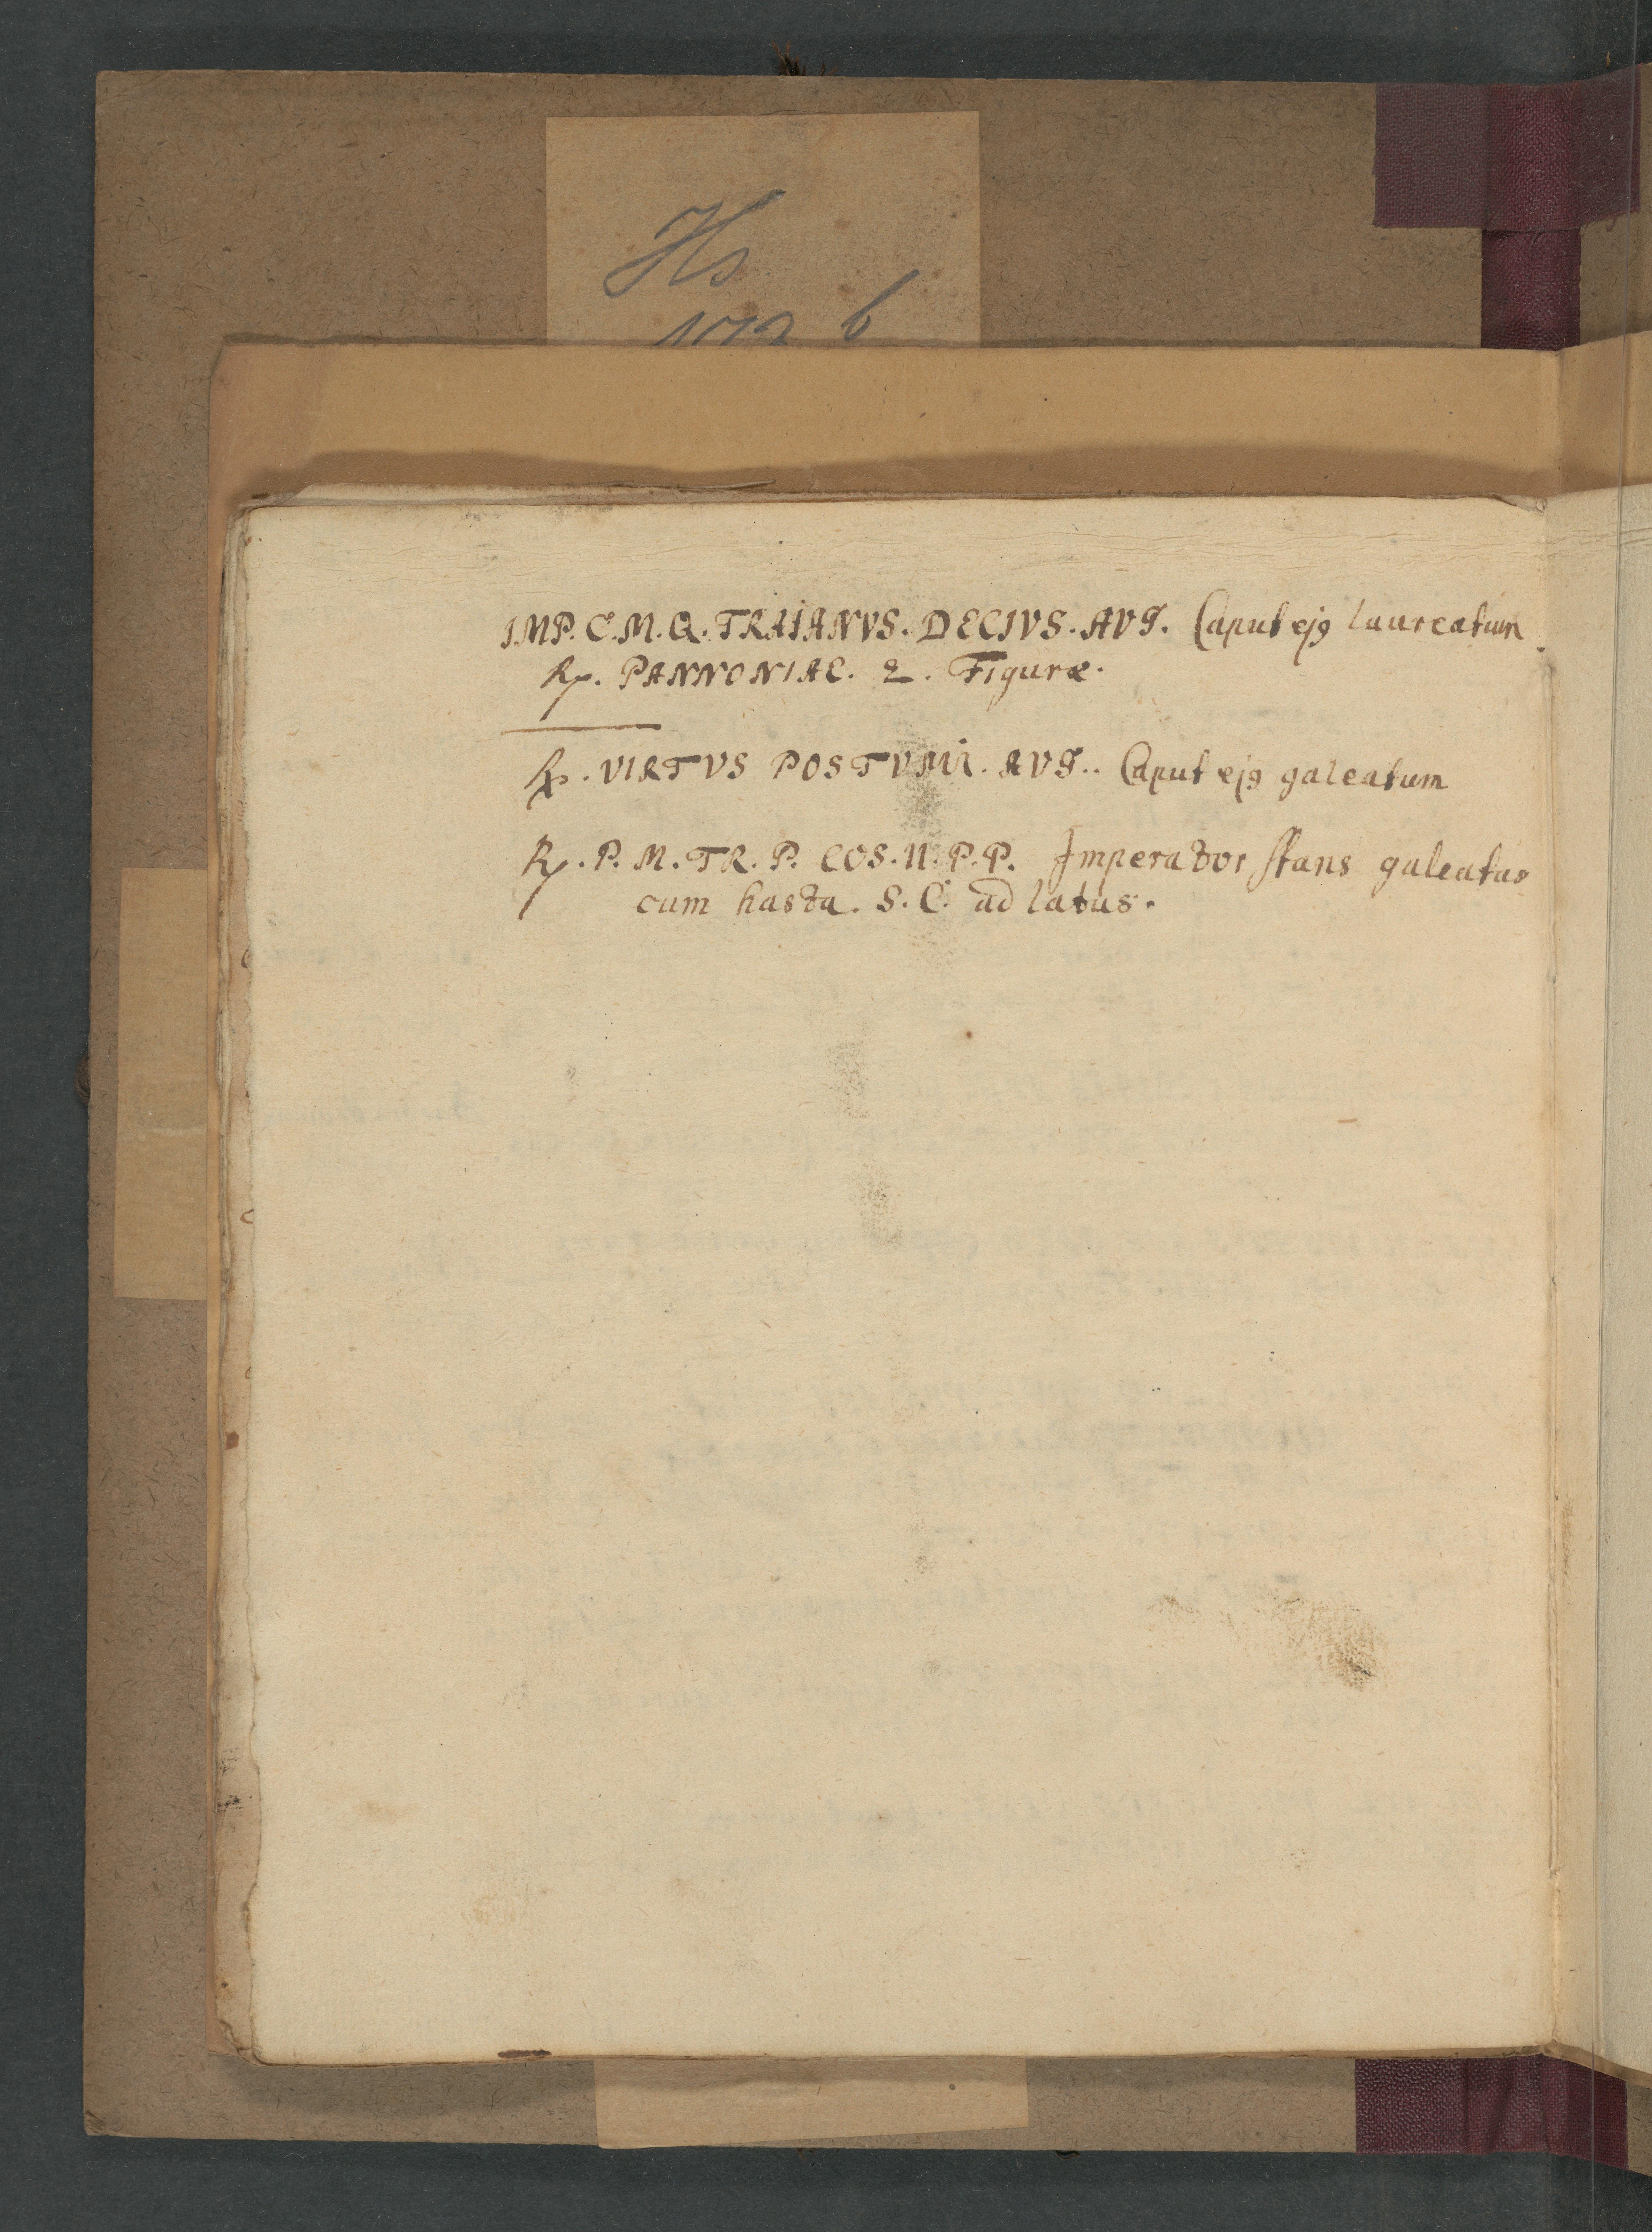 Hs
b
IMP. C. M. Q. TRAIANVS. DECIVS. AVG. Caput ej9 laureatum
Rx. PANNONIAE. 2. Figuræ.
Rx. VIRTVS POSTVMI. AVG.. Caput ej9 galeatum
Rx. P. M. TR. P. COS. II. P. P. Imperator stans galeatus
cum hasta. S. C. ad latus.